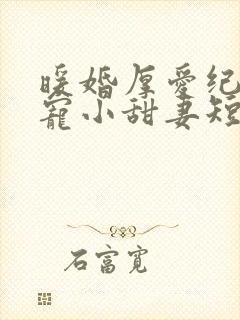 暖婚厚爱纪
宠小甜妻短
石富宽